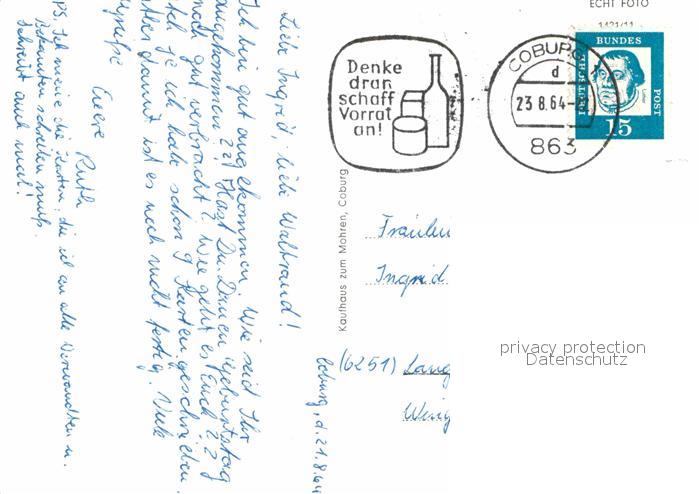 ECHT FOTO
1421/11
Denke
dran
schaff
Vorrat
an!
COBURG 1
d
23.8.64-
863
DEUTSCHE
BUNDES
POST
15
Kaufhaus zum Mohren, Coburg
Coburg, d. 21.8.64
Liebe Ingrid, liebe Waltraud!
Ich bin gut angekommen. Wie seid Ihr
angekommen?? Hast Du Deinen Geburtstag
noch gut verbracht? Wie geht es Euch??
Ich habe schon 9 Karten geschrieben.
damit ist es noch nicht fertig. Viele
Grüße
Eure Ruth
PS. Ich meine die Karten, die ich an alle Verwandten u.
Bekannten schreiben muß.
Schreibt auch mal!
Fräulein
Ingrid
(6251) Lang
Wing
privacy protection
Datenschutz